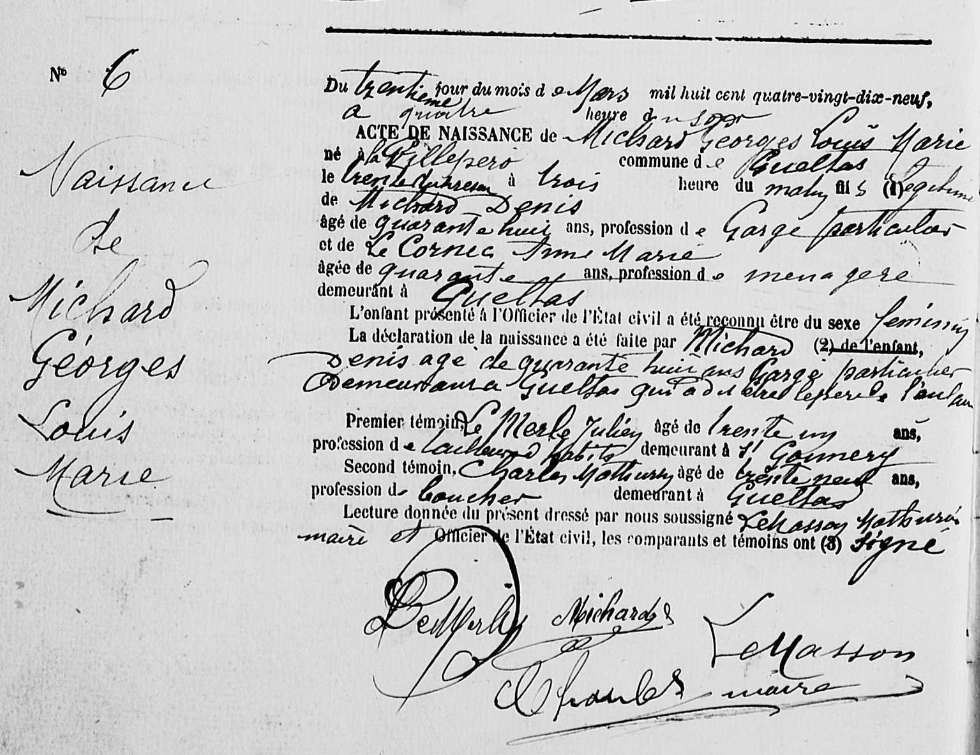 N° 6
Naissance
de
Michard
Géorges
Louis
Marie
Du trentième jour du mois de Mars mil huit cent quatre-vingt-dix-neuf,
a quatre heure du soir
ACTE DE NAISSANCE de Michard Géorges Louis Marie
né à la Villepero commune de Gueltas
le trente à trois heure du matin fils (1) legitime
de Michard Denis
âgé de quarante huit ans, profession de Garge particulier
et de Le Cornec Anne Marie
âgée de quarante ans, profession de menagere
demeurant à Gueltas
L'enfant présenté à l'Officier de l'État civil a été reconnu être du sexe feminin
La déclaration de la naissance a été faite par Michard (2) de l'enfant,
Denis agé de quarante huit ans Garge particulier
Demeurant a Gueltas qui a dit être le pere de l'enfant
Premier témoin Le Merle Julien âgé de trente un ans,
profession de demeurant à St Gonnery
Second témoin, Charles Mathurin âgé de trente neuf ans,
profession de boucher demeurant à Gueltas
Lecture donnée du présent dressé par nous soussigné LeMasson Mathurin
maire et Officier de l'État civil, les comparants et témoins ont (3) signé
LeMerle Michard
LeMasson
Charles maire